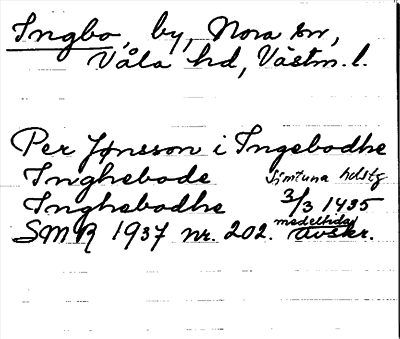 Ingbo, by, Nora sn,
Våla hd, Västm. l.
Per Jönsson i Ingebodhe
Inghebode Simtuna hdstg
Inghebodhe 3/3 1435
SMR 1937 nr. 202. medeltida avskr.